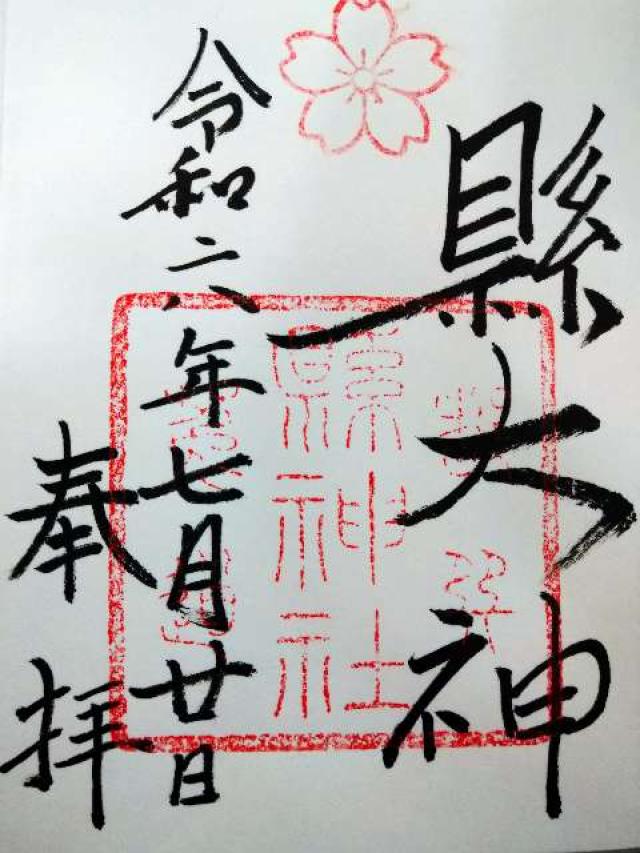 縣大神
令和六年七月廿日
奉拝
縣神社